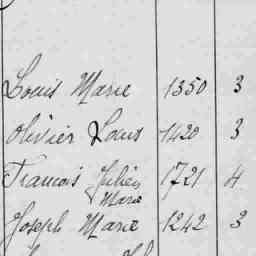 Louis Marie 1350 3
Olivier Louis 1420 3
Francois Julien 1721 4
Marie
Joseph Marie 1242 3